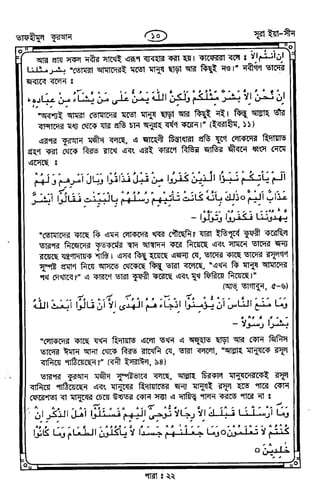 তাফহীমুল কুরআন ১০ সূরা ইয়া-সীন
আর প্রায় সকল নবীর সাথেই এরূপ ব্যবহার করা হয়। কাফেররা বলে : إِنْ أَنْتُمْ إِلَّا
بَشَرٌ مِثْلُنَا "তোমরা আমাদেরই মতো মানুষ ছাড়া আর কিছুই নও।" নবীগণ তাদের
জবাবে বলেন :
إِنْ نَحْنُ إِلَّا بَشَرٌ مِثْلُكُمْ وَلَكِنَّ اللهَ يَمُنُّ عَلَى مَنْ يَشَاءُ مِنْ عِبَادِهِ
"অবশ্যই আমরা তোমাদের মতো মানুষ ছাড়া আর কিছুই নই। কিন্তু আল্লাহ তাঁর
বান্দাদের মধ্য থেকে যার প্রতি চান অনুগ্রহ বর্ষণ করেন।" (ইবরাহীম, ১১)
এরপর কুরআন মজীদ বলছে, এ জাহেলী চিন্তাধারা প্রতি যুগে লোকদের হিদায়াত
গ্রহণ করা থেকে বিরত রাখে এবং এরই কারণে বিভিন্ন জাতির জীবনে ধ্বংস নেমে
এসেছে :
أَلَمْ يَأْتِكُمْ نَبَؤُا الَّذِينَ كَفَرُوا مِنْ قَبْلُ فَذَاقُوا وَبَالَ أَمْرِهِمْ وَلَهُمْ
عَذَابٌ أَلِيمٌ ۝ ذَلِكَ بِأَنَّهُ كَانَتْ تَأْتِيهِمْ رُسُلُهُمْ بِالْبَيِّنَتِ فَقَالُوا أَبَشَرٌ
يَهْدُونَنَا فَكَفَرُوا وَتَوَلَّوْا -
"তোমাদের কাছে কি এমন লোকদের খবর পৌছেনি? যারা ইতিপূর্বে কুফরী করেছিল
তারপর নিজেদের কৃতকর্মের স্বাদ আস্বাদন করে নিয়েছে এবং সামনে তাদের জন্য
রয়েছে যন্ত্রণাদায়ক শাস্তি। এসব কিছু হয়েছে এজন্য যে, তাদের কাছে তাদের রসূলগণ
সুস্পষ্ট প্রমাণ নিয়ে আসতে থেকেছে কিন্তু তারা বলেছে, "এখন কি মানুষ আমাদের
পথ দেখাবে?" এ কারণে তারা কুফরী করেছে এবং মুখ ফিরিয়ে নিয়েছে।"
(আত্ তাগাবুন, ৫-৬)
وَمَا مَنَعَ النَّاسَ أَنْ يُؤْمِنُوا إِذْ جَاءَهُمُ الْهُدَى إِلَّا أَنْ قَالُوا أَبَعَثَ اللهُ
بَشَرًا رَسُولًا -
"লোকদের কাছে যখন হিদায়াত এলো তখন এ অজুহাত ছাড়া আর কোন জিনিস
তাদের ঈমান আনা থেকে বিরত রাখেনি যে, তারা বললো, "আল্লাহ মানুষকে রসূল
বানিয়ে পাঠিয়েছেন?" (বনী ইসরাঈল, ৯৪)
তারপর কুরআন মজীদ সুস্পষ্টভাবে বলছে, আল্লাহ চিরকাল মানুষদেরকেই রসূল
বানিয়ে পাঠিয়েছেন এবং মানুষের হিদায়াতের জন্য মানুষই রসূল হতে পারে কোন
ফেরেশতা বা মানুষের চেয়ে উচ্চতর কোন সত্তা এ দায়িত্ব পালন করতে পারে না :
وَمَا أَرْسَلْنَا قَبْلَكَ إِلَّا رِجَالًا نُوحِي إِلَيْهِمْ فَسْئَلُوا أَهْلَ الذِّكْرِ إِنْ
كُنْتُمْ لَا تَعْلَمُونَ ۝ وَمَا جَعَلْنَهُمْ جَسَدًا لَا يَأْكُلُونَ الطَّعَامَ وَمَا كَانُوا
خَلِدِينَ ۝
পারা : ২২